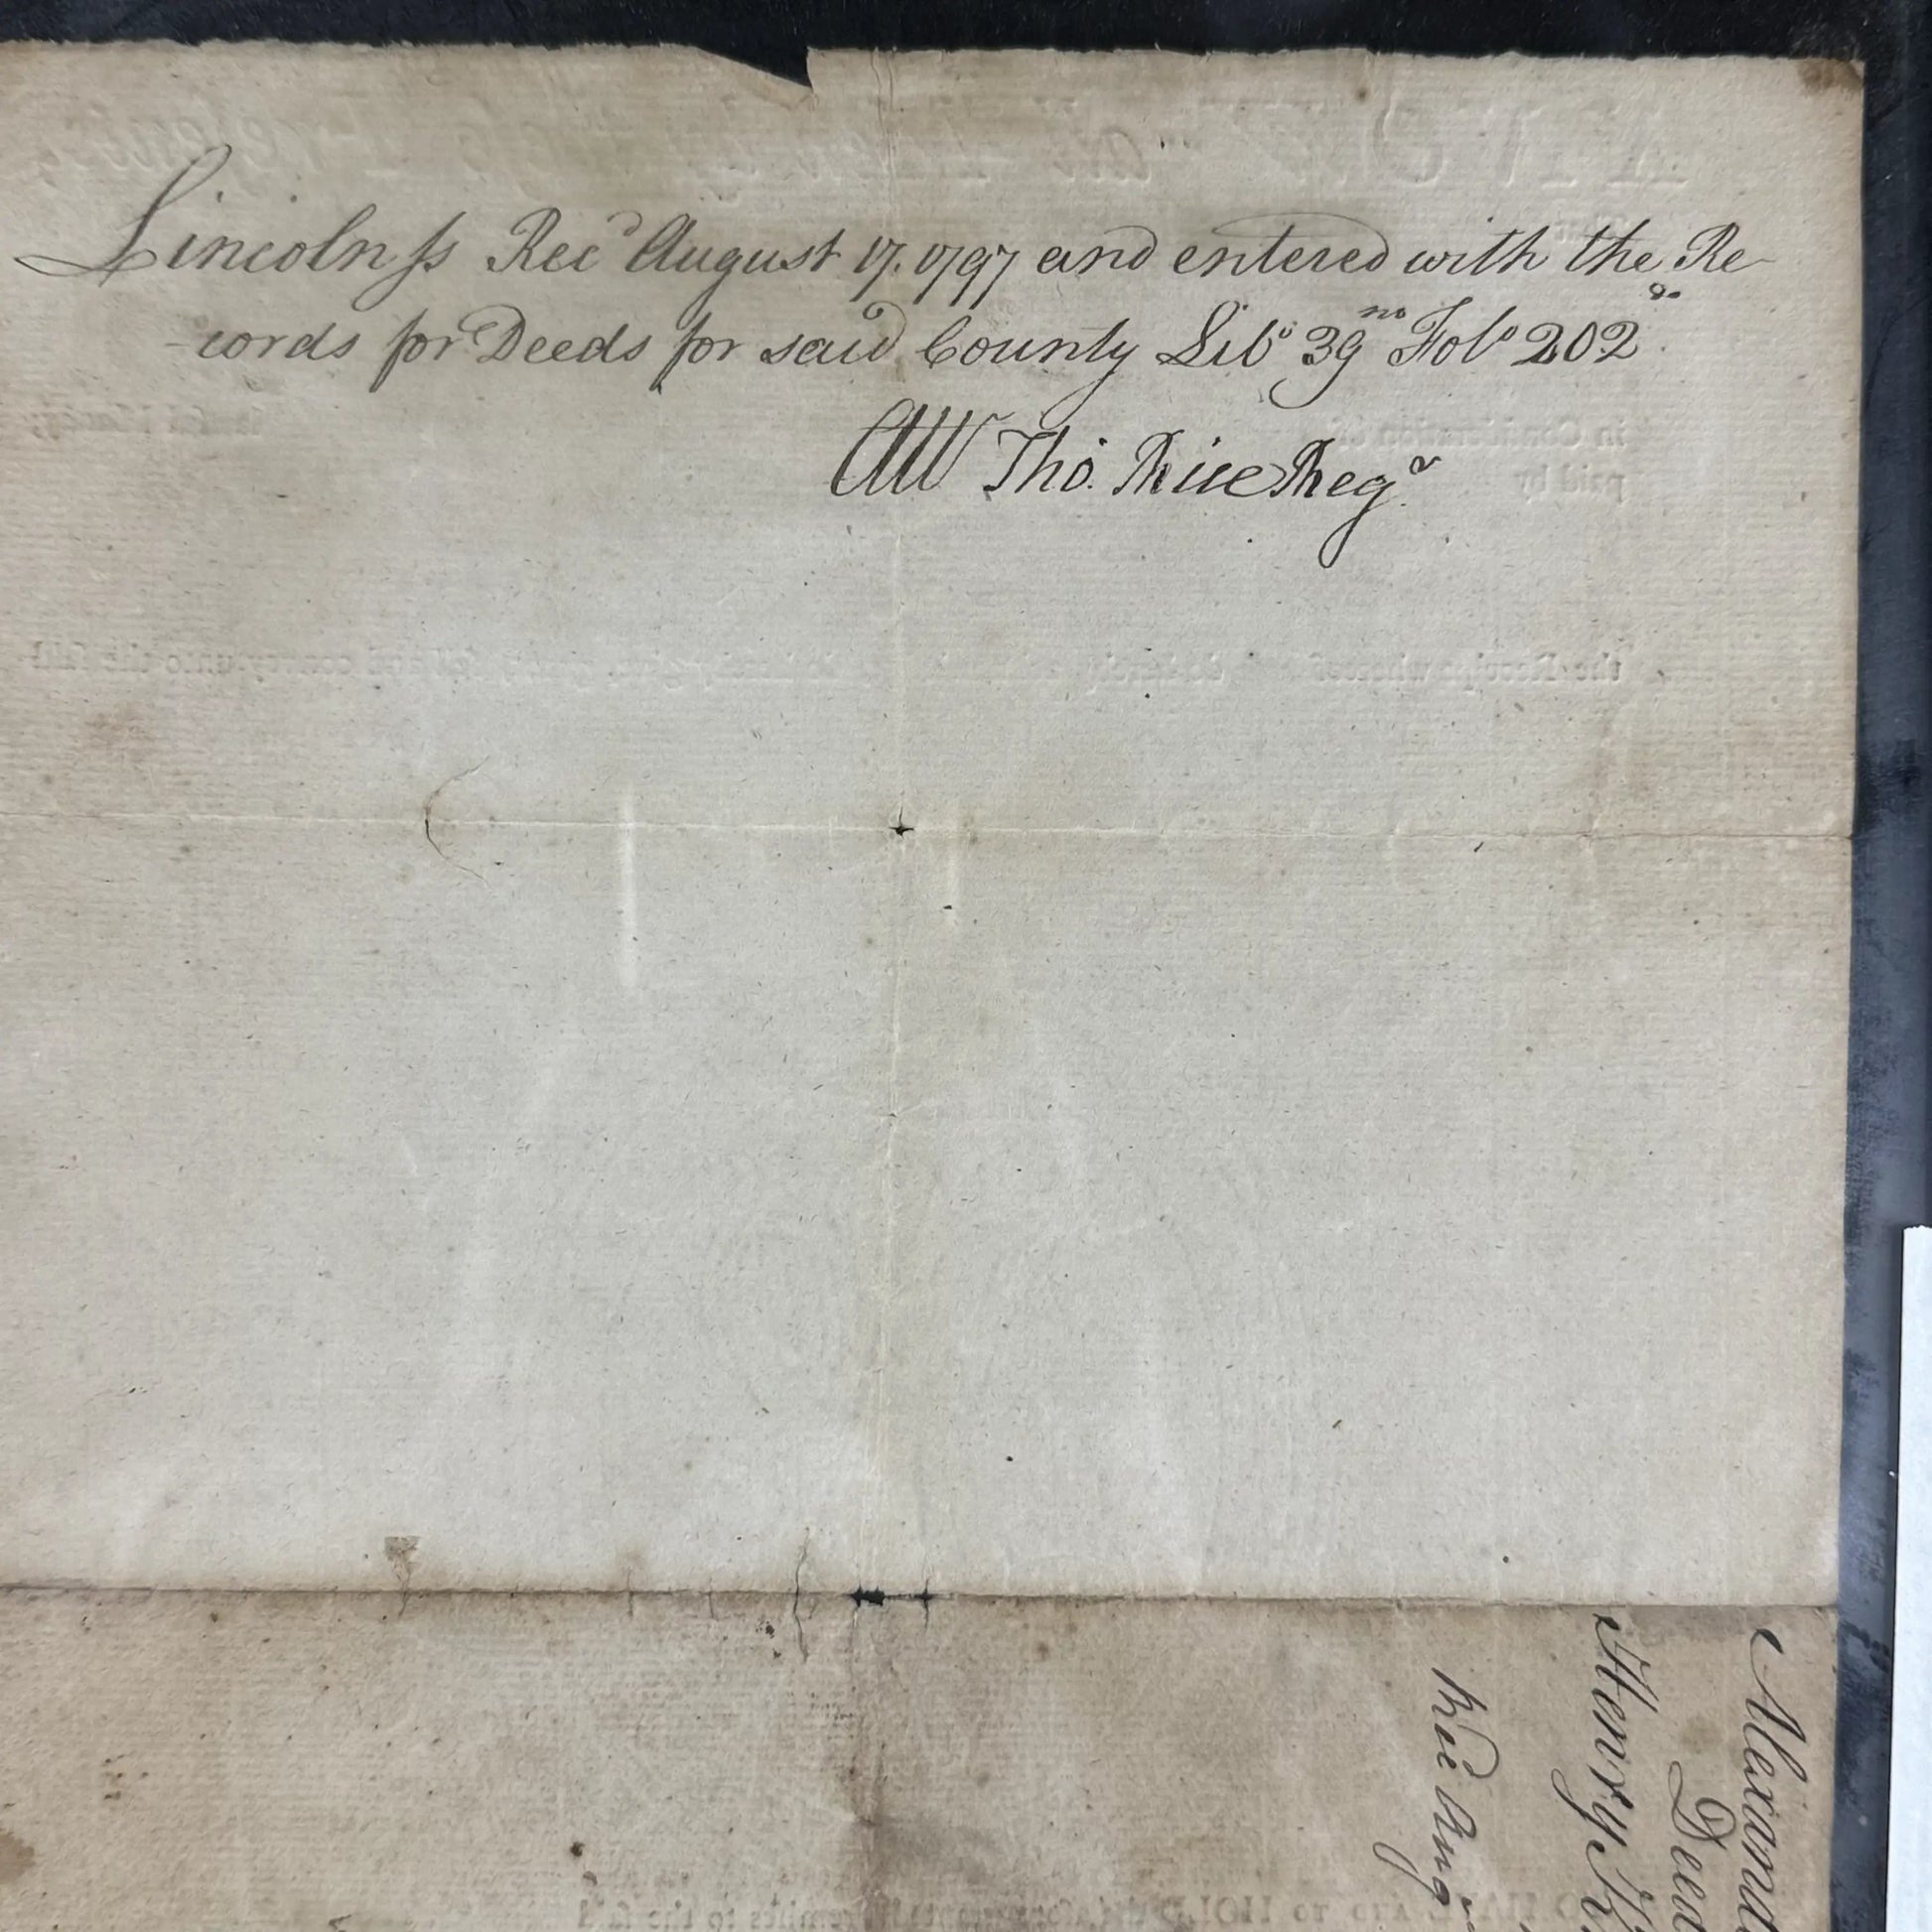 Lincoln ſs Recd August 17. 1797 and entered with the Re-
-cords for Deeds for said County Libo 39 no Folo 202
Att Tho. Rice Regr
Alexand
Deed
Henry K
Recd Aug